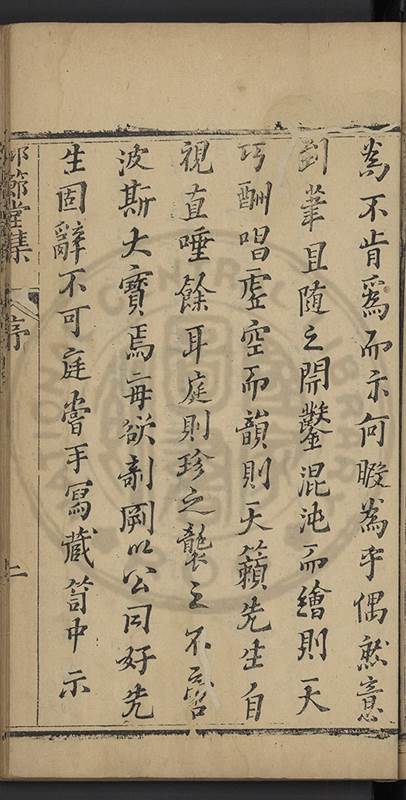 為不肯為而亦何暇為乎偶然意
到筆且随之開鑿混沌而繪則天
巧酬唱虛空而韻則天籟先生自
視直唾餘耳庭則珍之襲之不啻
波斯大寶焉每欲剞劂以公同好先
生固辭不可庭嘗手寫藏笥中示
節堂集
序
二